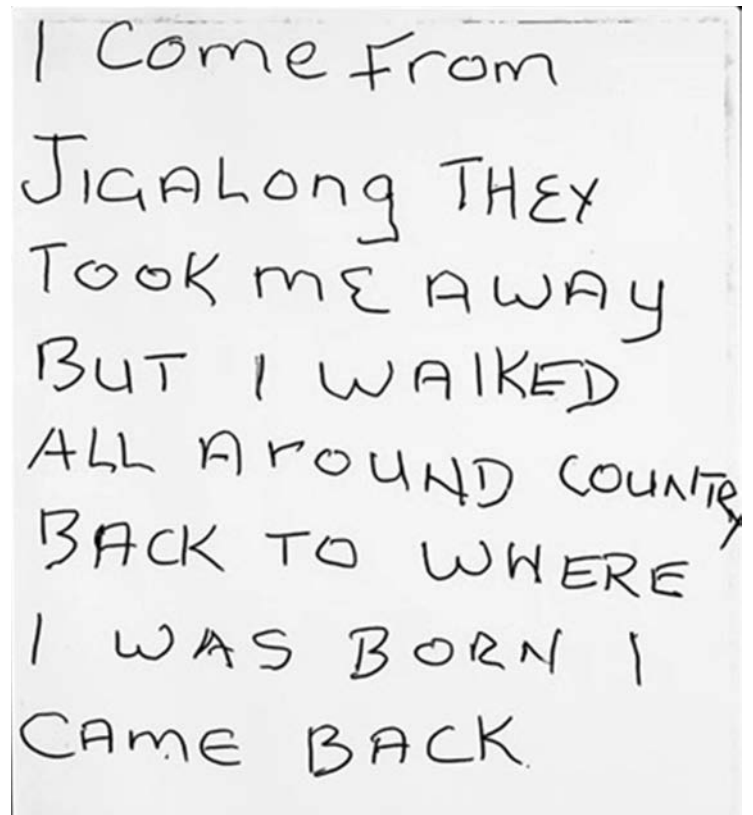 I Come From
JIGALong THEY
TOOK mE AWAY
BUT I WALKED
ALL ArOUND COUNTRY
BACK TO WHERE
I WAS BORN I
CAME BACK.